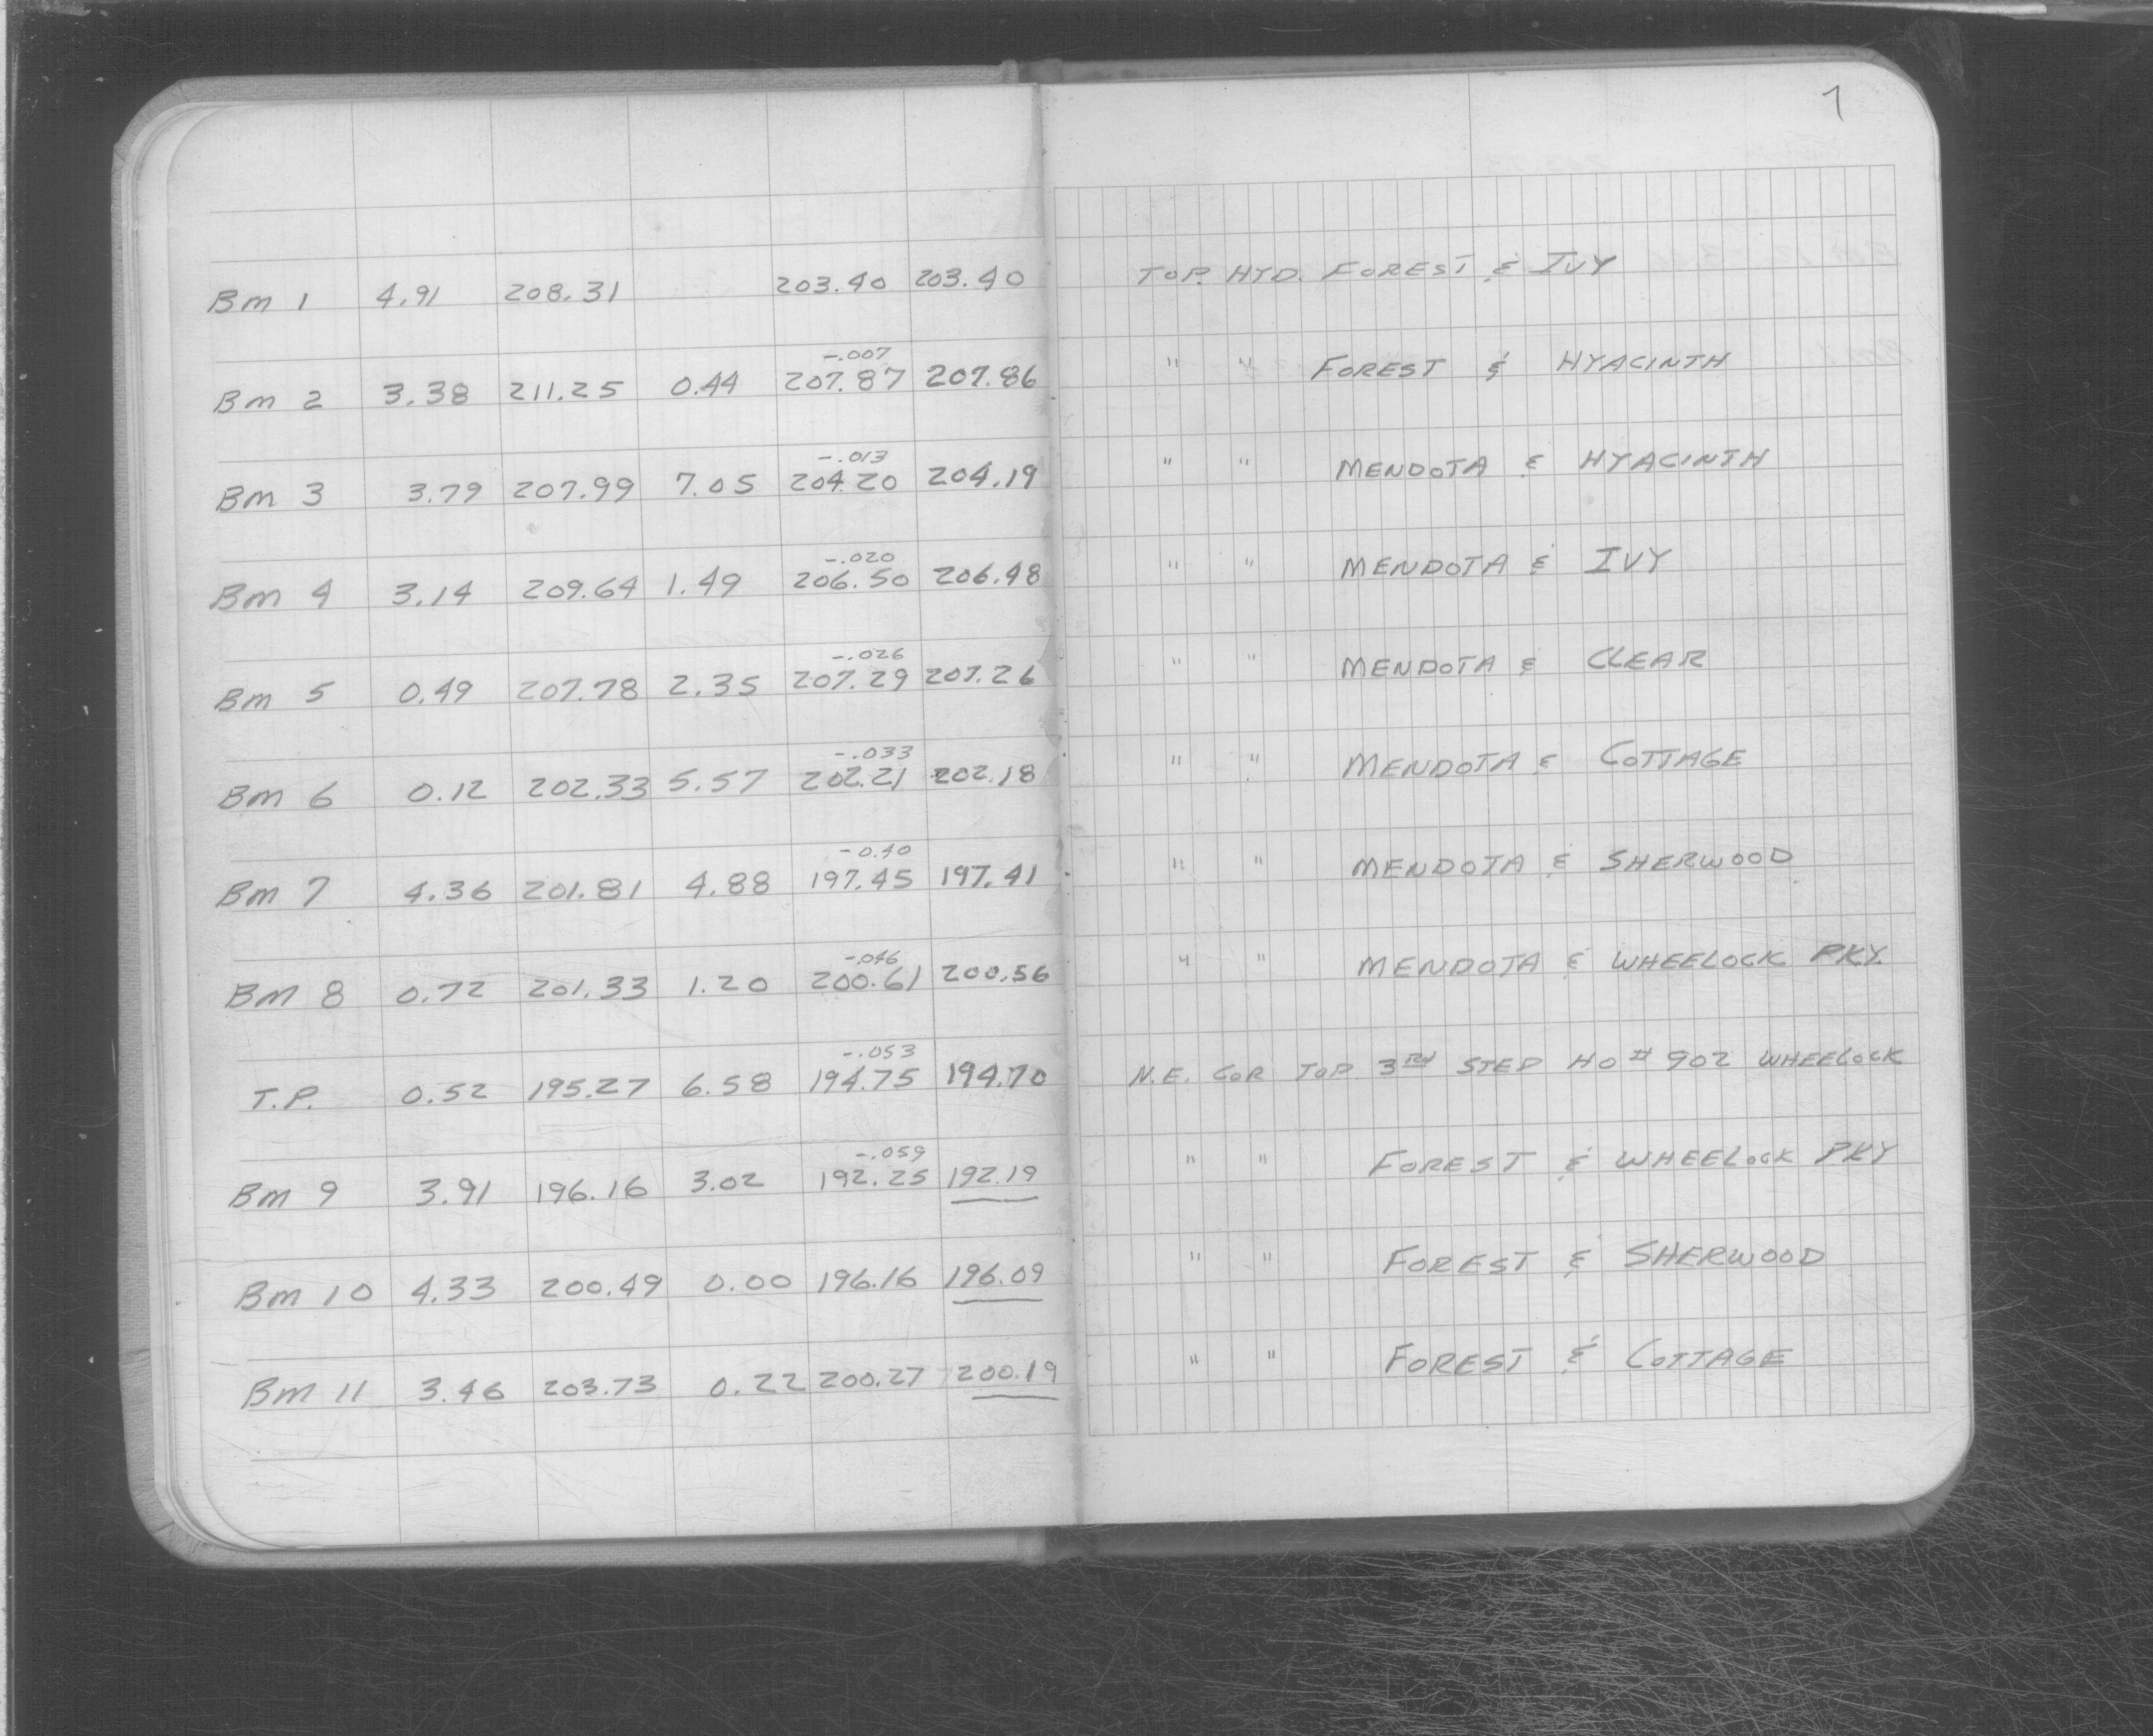 7
Bm 1 4.91 208.31 203.40 203.40 TOP. HYD. FOREST & IVY
-.007
Bm 2 3.38 211.25 0.44 207.87 207.86 " " FOREST & HYACINTH
-.013
Bm 3 3.79 207.99 7.05 204.20 204.19 " " MENDOTA & HYACINTH
-.020
Bm 4 3.14 209.64 1.49 206.50 206.48 " " MENDOTA & IVY
-.026
Bm 5 0.49 207.78 2.35 207.29 207.26 " " MENDOTA & CLEAR
-.033
Bm 6 0.12 202.33 5.57 202.21 202.18 " " MENDOTA & COTTAGE
-0.40
Bm 7 4.36 201.81 4.88 197.45 197.41 " " MENDOTA & SHERWOOD
-.046
Bm 8 0.72 201.33 1.20 200.61 200.56 " " MENDOTA & WHEELOCK PKY.
-.053
T.P. 0.52 195.27 6.58 194.75 194.70 N.E. COR TOP 3RD STEP HO # 902 WHEELOCK
-.059
Bm 9 3.91 196.16 3.02 192.25 192.19 " " FOREST & WHEELOCK PKY
Bm 10 4.33 200.49 0.00 196.16 196.09 " " FOREST & SHERWOOD
Bm 11 3.46 203.73 0.22 200.27 200.19 " " FOREST & COTTAGE